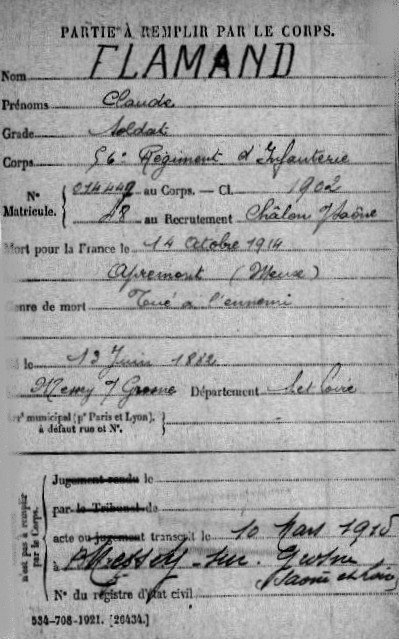 PARTIE À REMPLIR PAR LE CORPS.
Nom FLAMAND
Prénoms Claude
Grade Soldat
Corps 56e Régiment d'Infanterie
N° Matricule. { 014449 au Corps. — Cl. 1902
28 au Recrutement Châlon s/Saône
Mort pour la France le 14 Octobre 1914
Apremont (Meuse)
Genre de mort Tué à l'ennemi
Né le 13 Juin 1882
Messey s/ Grosne Département S et Loire
Arrt municipal (pr Paris et Lyon), à défaut rue et N°. }
n'est pas à remplir par le Corps.
Jugement rendu le
par le Tribunal de
acte ou jugement transcrit le 10 Mars 1915
à Messey-sur-Grosne
Saône et Loire
N° du registre d'état civil
534-708-1921. [26434.]